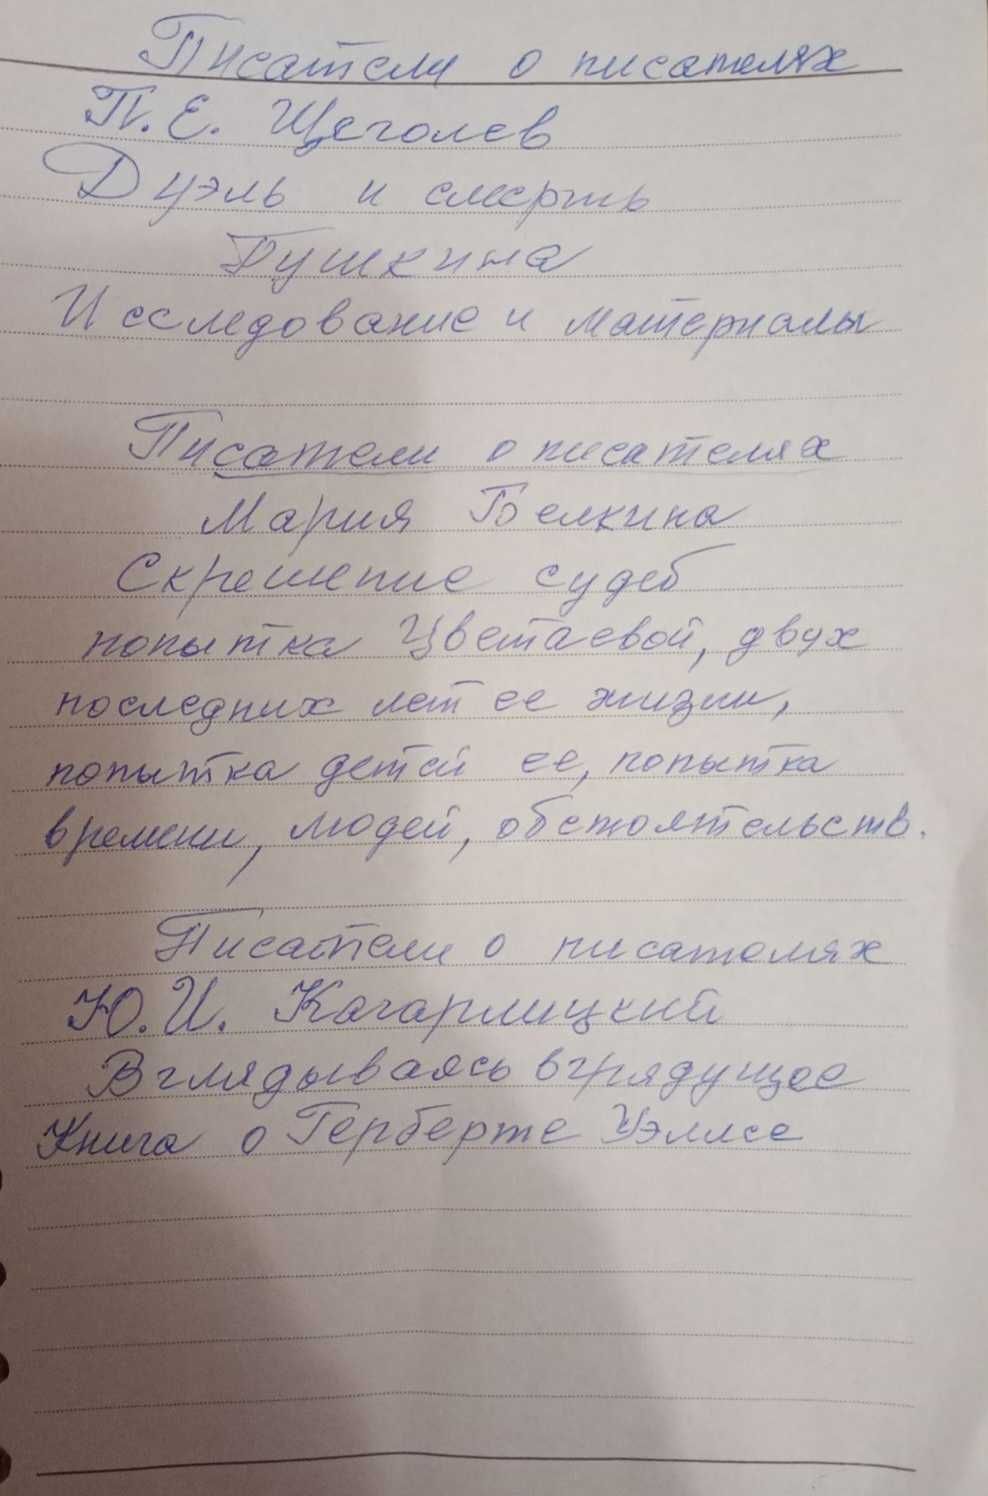 Писатели о писателях
П. Е. Щеголев
Дуэль и смерть
Пушкина
Исследование и материалы
Писатели о писателях
Мария Белкина
Скрещение судеб
попытка Цветаевой, двух
последних лет ее жизни,
попытка детей ее, попытка
времени, людей, обстоятельств.
Писатели о писателях
Ю. И. Кагарлицкий
Вглядываясь в грядущее
Книга о Герберте Уэллсе